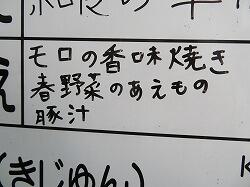 モロの香味焼き
春野菜のあえもの
豚汁
え
(きじゅん)